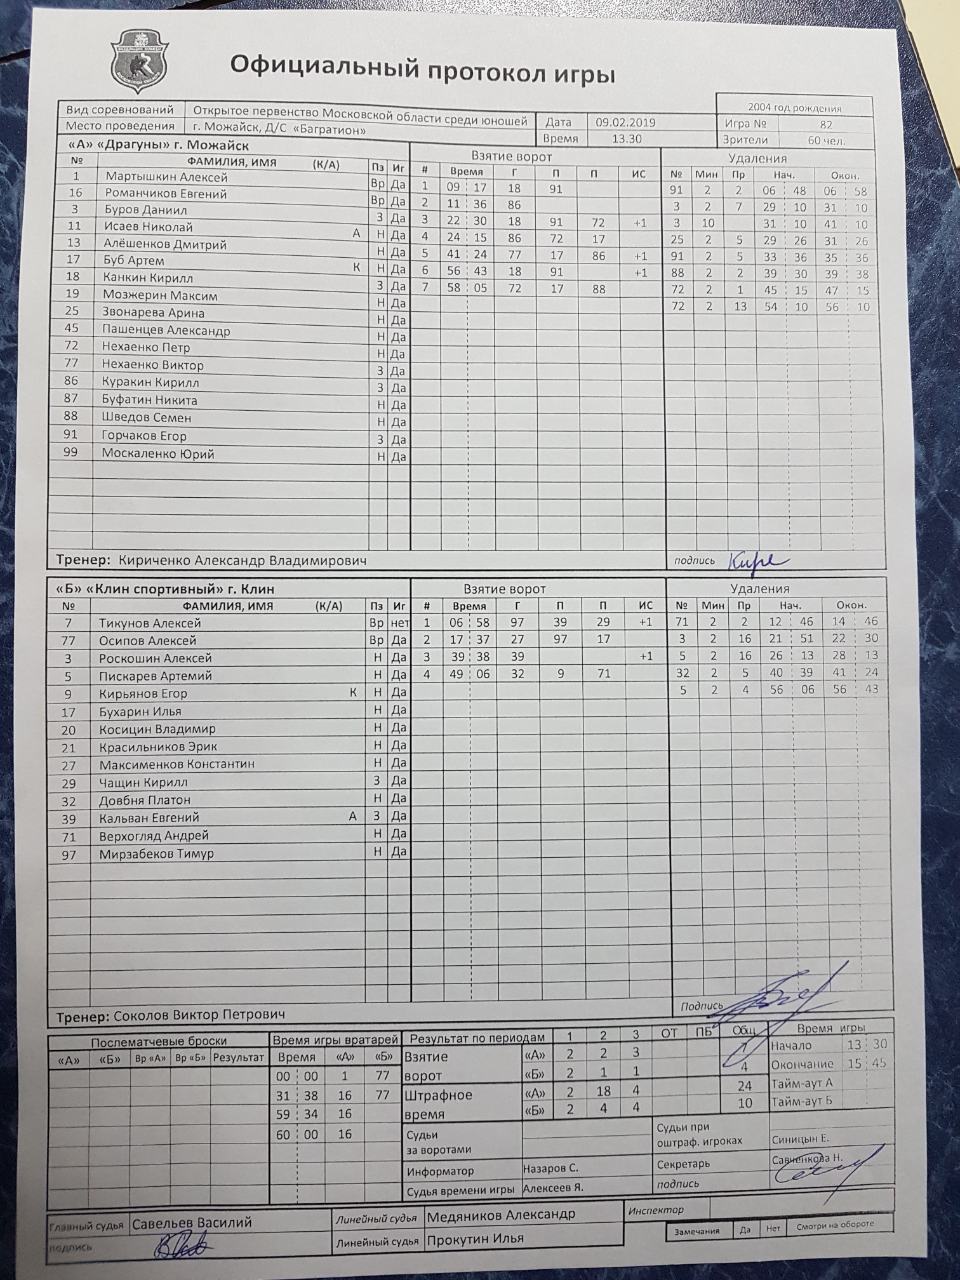 Официальный протокол игры
2004 год рождения
Вид соревнований Открытое первенство Московской области среди юношей Дата 09.02.2019 Игра № 82
Место проведения г. Можайск, Д/С «Багратион» Время 13.30 Зрители 60 чел.
«А» «Драгуны» г. Можайск Взятие ворот Удаления
№ ФАМИЛИЯ, ИМЯ (К/А) Пз Иг # Время Г П П ИС № Мин Пр Нач. Окон.
1 Мартышкин Алексей Вр Да 1 09 17 18 91 91 2 2 06 48 06 58
16 Романчиков Евгений Вр Да 2 11 36 86 3 2 7 29 10 31 10
3 Буров Даниил З Да 3 22 30 18 91 72 +1 3 10 31 10 41 10
11 Исаев Николай А Н Да 4 24 15 86 72 17 25 2 5 29 26 31 26
13 Алёшенков Дмитрий Н Да 5 41 24 77 17 86 +1 91 2 5 33 36 35 36
17 Буб Артем К Н Да 6 56 43 18 91 +1 88 2 2 39 30 39 38
18 Канкин Кирилл З Да 7 58 05 72 17 88 72 2 1 45 15 47 15
19 Мозжерин Максим Н Да 72 2 13 54 10 56 10
25 Звонарева Арина Н Да
45 Пашенцев Александр Н Да
72 Нехаенко Петр Н Да
77 Нехаенко Виктор З Да
86 Куракин Кирилл З Да
87 Буфатин Никита Н Да
88 Шведов Семен Н Да
91 Горчаков Егор З Да
99 Москаленко Юрий Н Да
Тренер: Кириченко Александр Владимирович подпись Кире
«Б» «Клин спортивный» г. Клин Взятие ворот Удаления
№ ФАМИЛИЯ, ИМЯ (К/А) Пз Иг # Время Г П П ИС № Мин Пр Нач. Окон.
7 Тикунов Алексей Вр нет 1 06 58 97 39 29 +1 71 2 2 12 46 14 46
77 Осипов Алексей Вр Да 2 17 37 27 97 17 3 2 16 21 51 22 30
3 Роскошин Алексей Н Да 3 39 38 39 +1 5 2 16 26 13 28 13
5 Пискарев Артемий Н Да 4 49 06 32 9 71 32 2 5 40 39 41 24
9 Кирьянов Егор К Н Да 5 2 4 56 06 56 43
17 Бухарин Илья Н Да
20 Косицин Владимир Н Да
21 Красильников Эрик Н Да
27 Максименков Константин Н Да
29 Чащин Кирилл З Да
32 Довбня Платон Н Да
39 Кальван Евгений А З Да
71 Верхогляд Андрей Н Да
97 Мирзабеков Тимур Н Да
Тренер: Соколов Виктор Петрович Подпись
Послематчевые броски Время игры вратарей Результат по периодам 1 2 3 ОТ ПБ Общ Время игры
«А» «Б» Вр «А» Вр «Б» Результат Время «А» «Б» Взятие ворот «А» 2 2 3 7 Начало 13 30
00 00 1 77 «Б» 2 1 1 4 Окончание 15 45
31 38 16 77 Штрафное время «А» 2 18 4 24 Тайм-аут А
59 34 16 «Б» 2 4 4 10 Тайм-аут Б
60 00 16 Судьи за воротами Судьи при оштраф. игроках Синицын Е.
Информатор Назаров С. Секретарь Савченкова Н.
Судья времени игры Алексеев Я. подпись
Главный судья Савельев Василий Линейный судья Медяников Александр Инспектор
подпись Линейный судья Прокутин Илья Замечания Да Нет Смотри на обороте